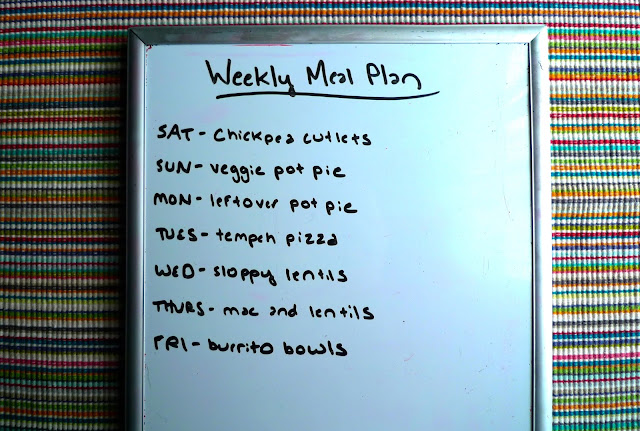 Weekly Meal Plan
SAT - Chickpea cutlets
SUN - veggie pot pie
MON - leftover pot pie
TUES - tempeh pizza
WED - sloppy lentils
THURS - mac and lentils
FRI - burrito bowls